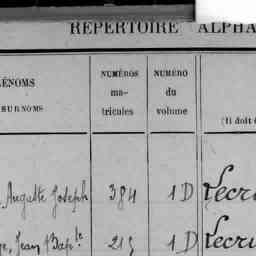 RÉPERTOIRE ALPHA
ÉNOMS
SURNOMS
NUMÉROS
ma-
tricules
NUMÉRO
du
volume
(Il doit
Auguste Joseph 384 1 D
Jean Bap.te 215 1 D